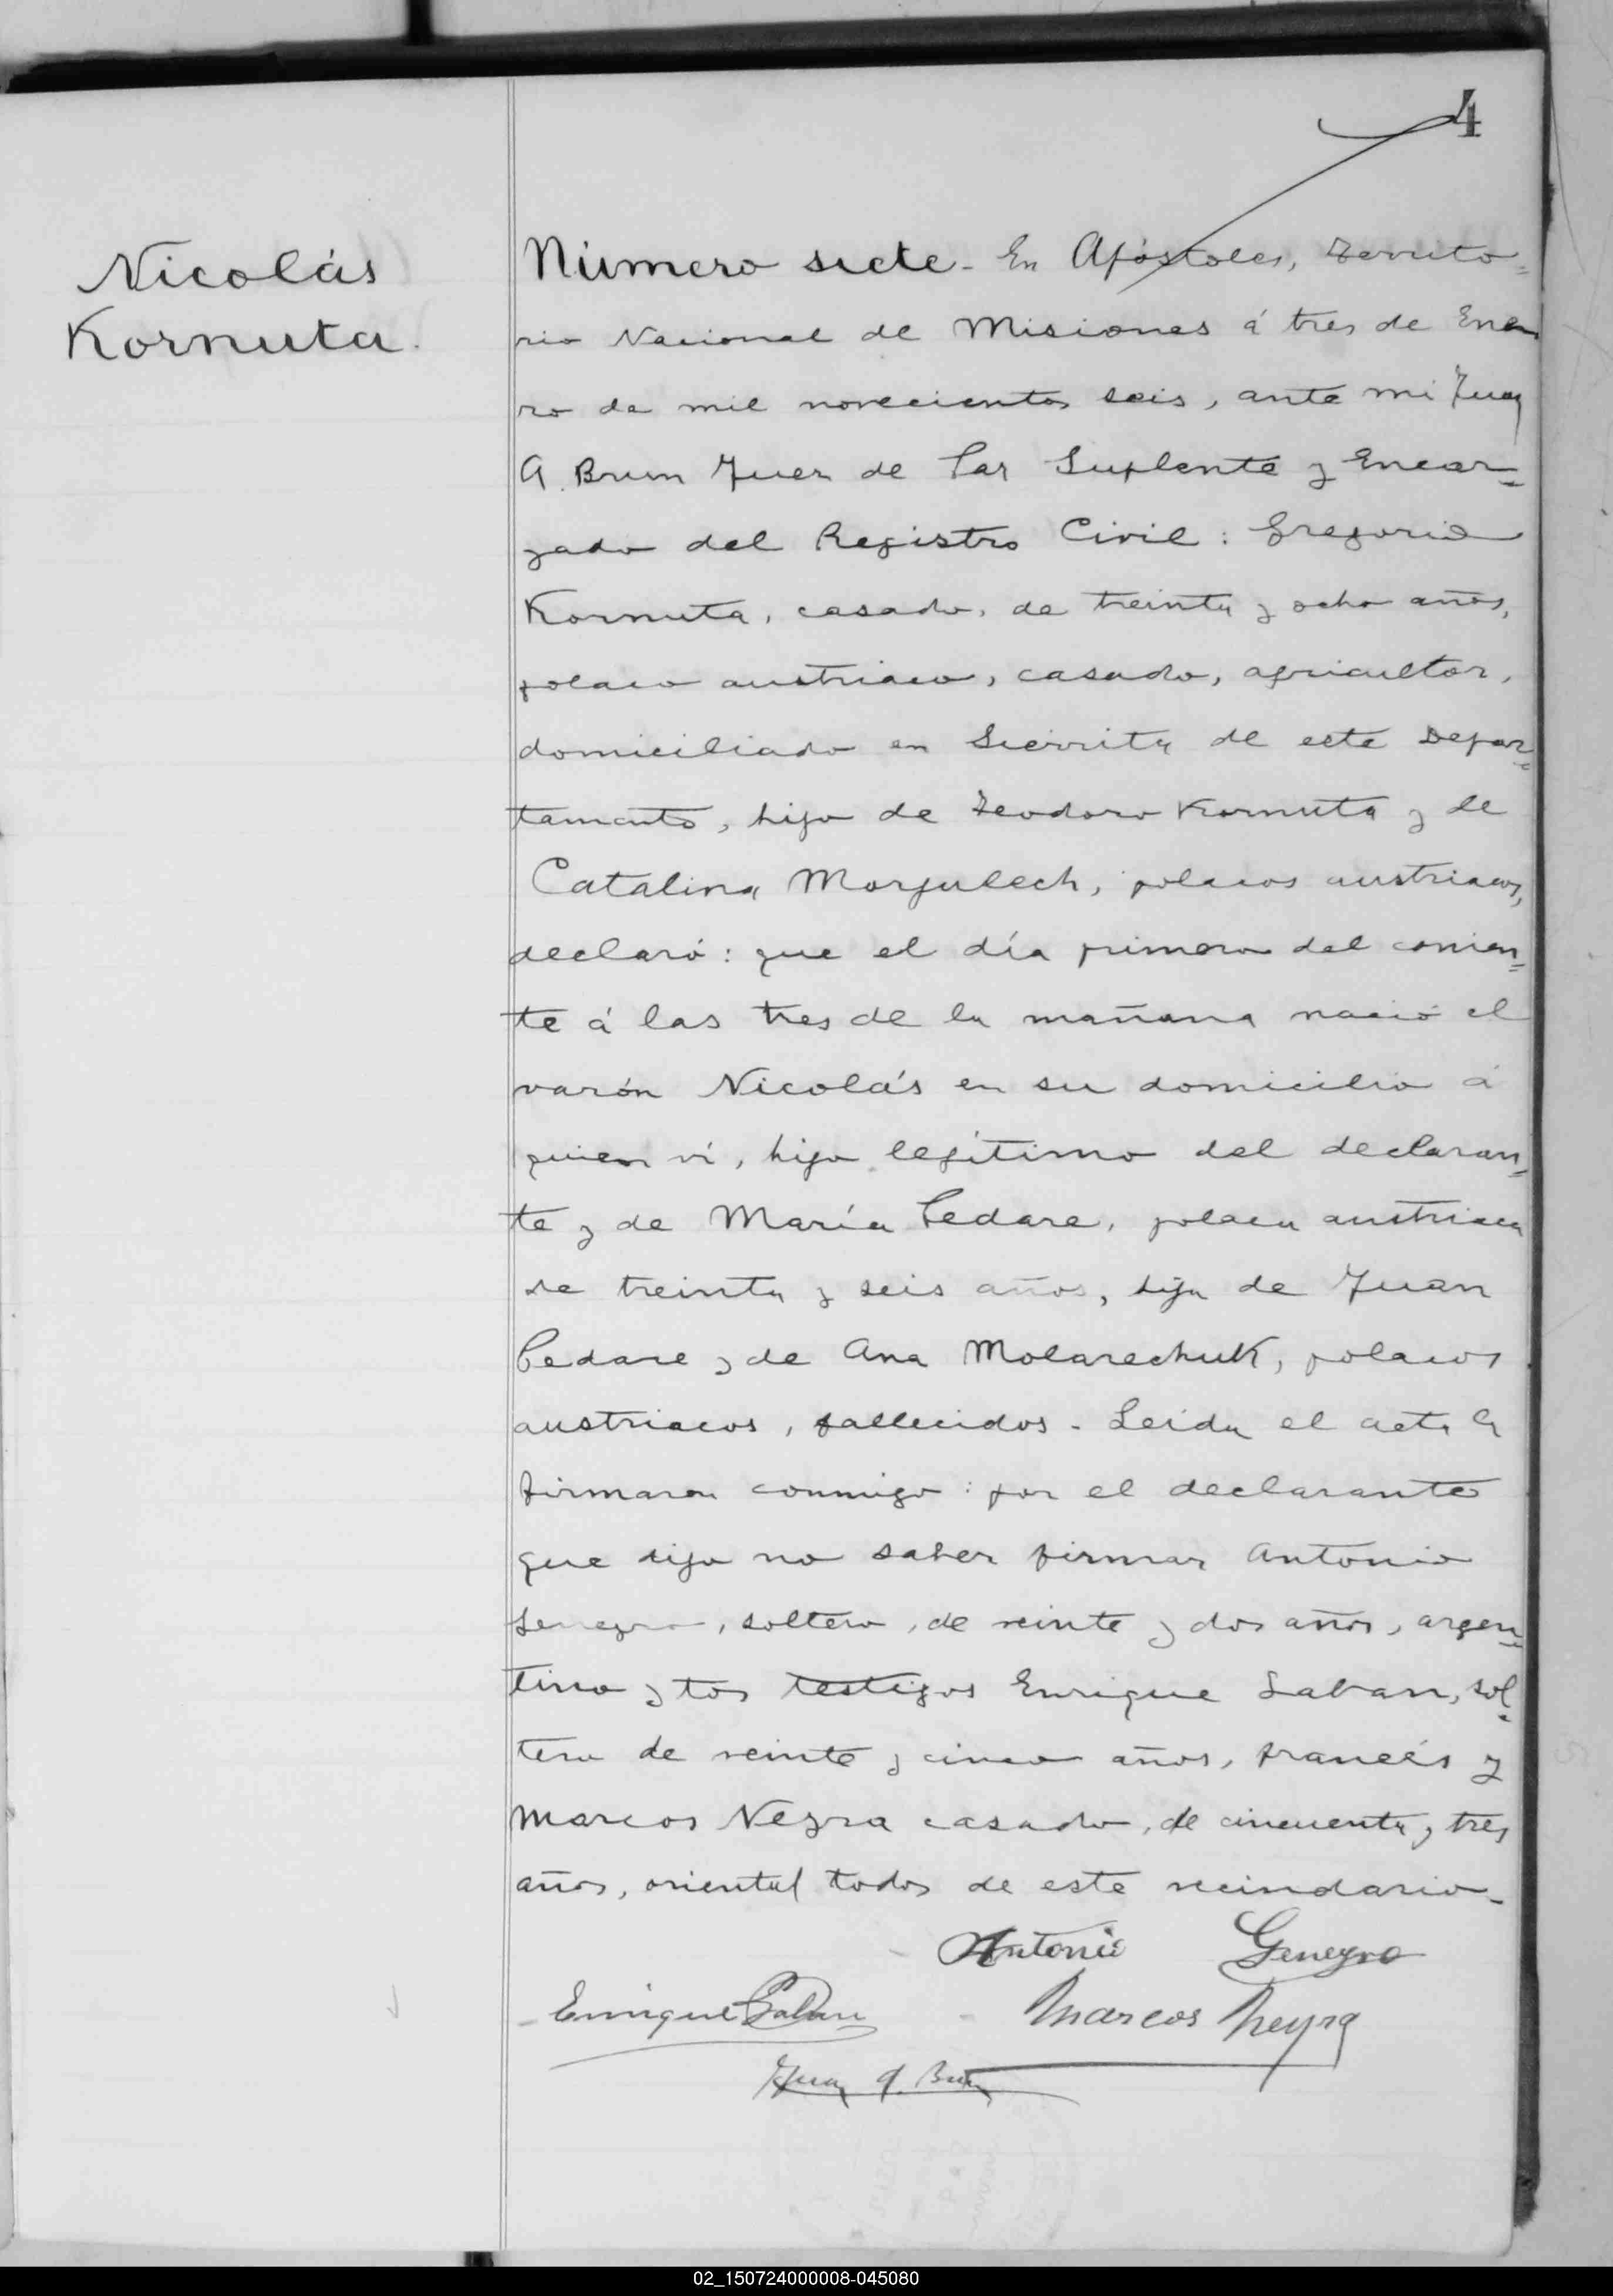 4
Nicolás
Kornuta.
Número siete - En Apóstoles, Territo=
rio Nacional de Misiones á tres de Ene
ro de mil novecientos seis, ante mi Juan
A. Brum Juez de Paz Suplente y Encar=
gado del Registro Civil: Gregorio
Kornuta, casado, de treinta y ocho años,
polaco austriaco, casado, agricultor,
domiciliado en Sierrita de este Depar=
tamento, hijo de Teodoro Kornuta y de
Catalina Morgulech, polacos austriacos,
declaró: que el día primero del corrien=
te á las tres de la mañana nació el
varón Nicolás en su domicilio á
quien ví, hijo legítimo del declaran=
te y de María Pedare, polaca austriaca
de treinta y seis años, hija de Juan
Pedare y de Ana Molarechuk, polacos
austriacos, fallecidos - Leida el acta la
firmaron conmigo: por el declarante
que dijo no saber firmar Antonio
Geneyro, soltero, de veinte y dos años, argen=
tino y los testigos Enrique Laban, sol=
tero de veinte y cinco años, francés y
Marcos Neyra casado, de cincuenta y tres
años, oriental todos de este vecindario -
Antonio Geneyro
Enrique Marcos Neyra
Juan A. Brum
02_150724000008-045080